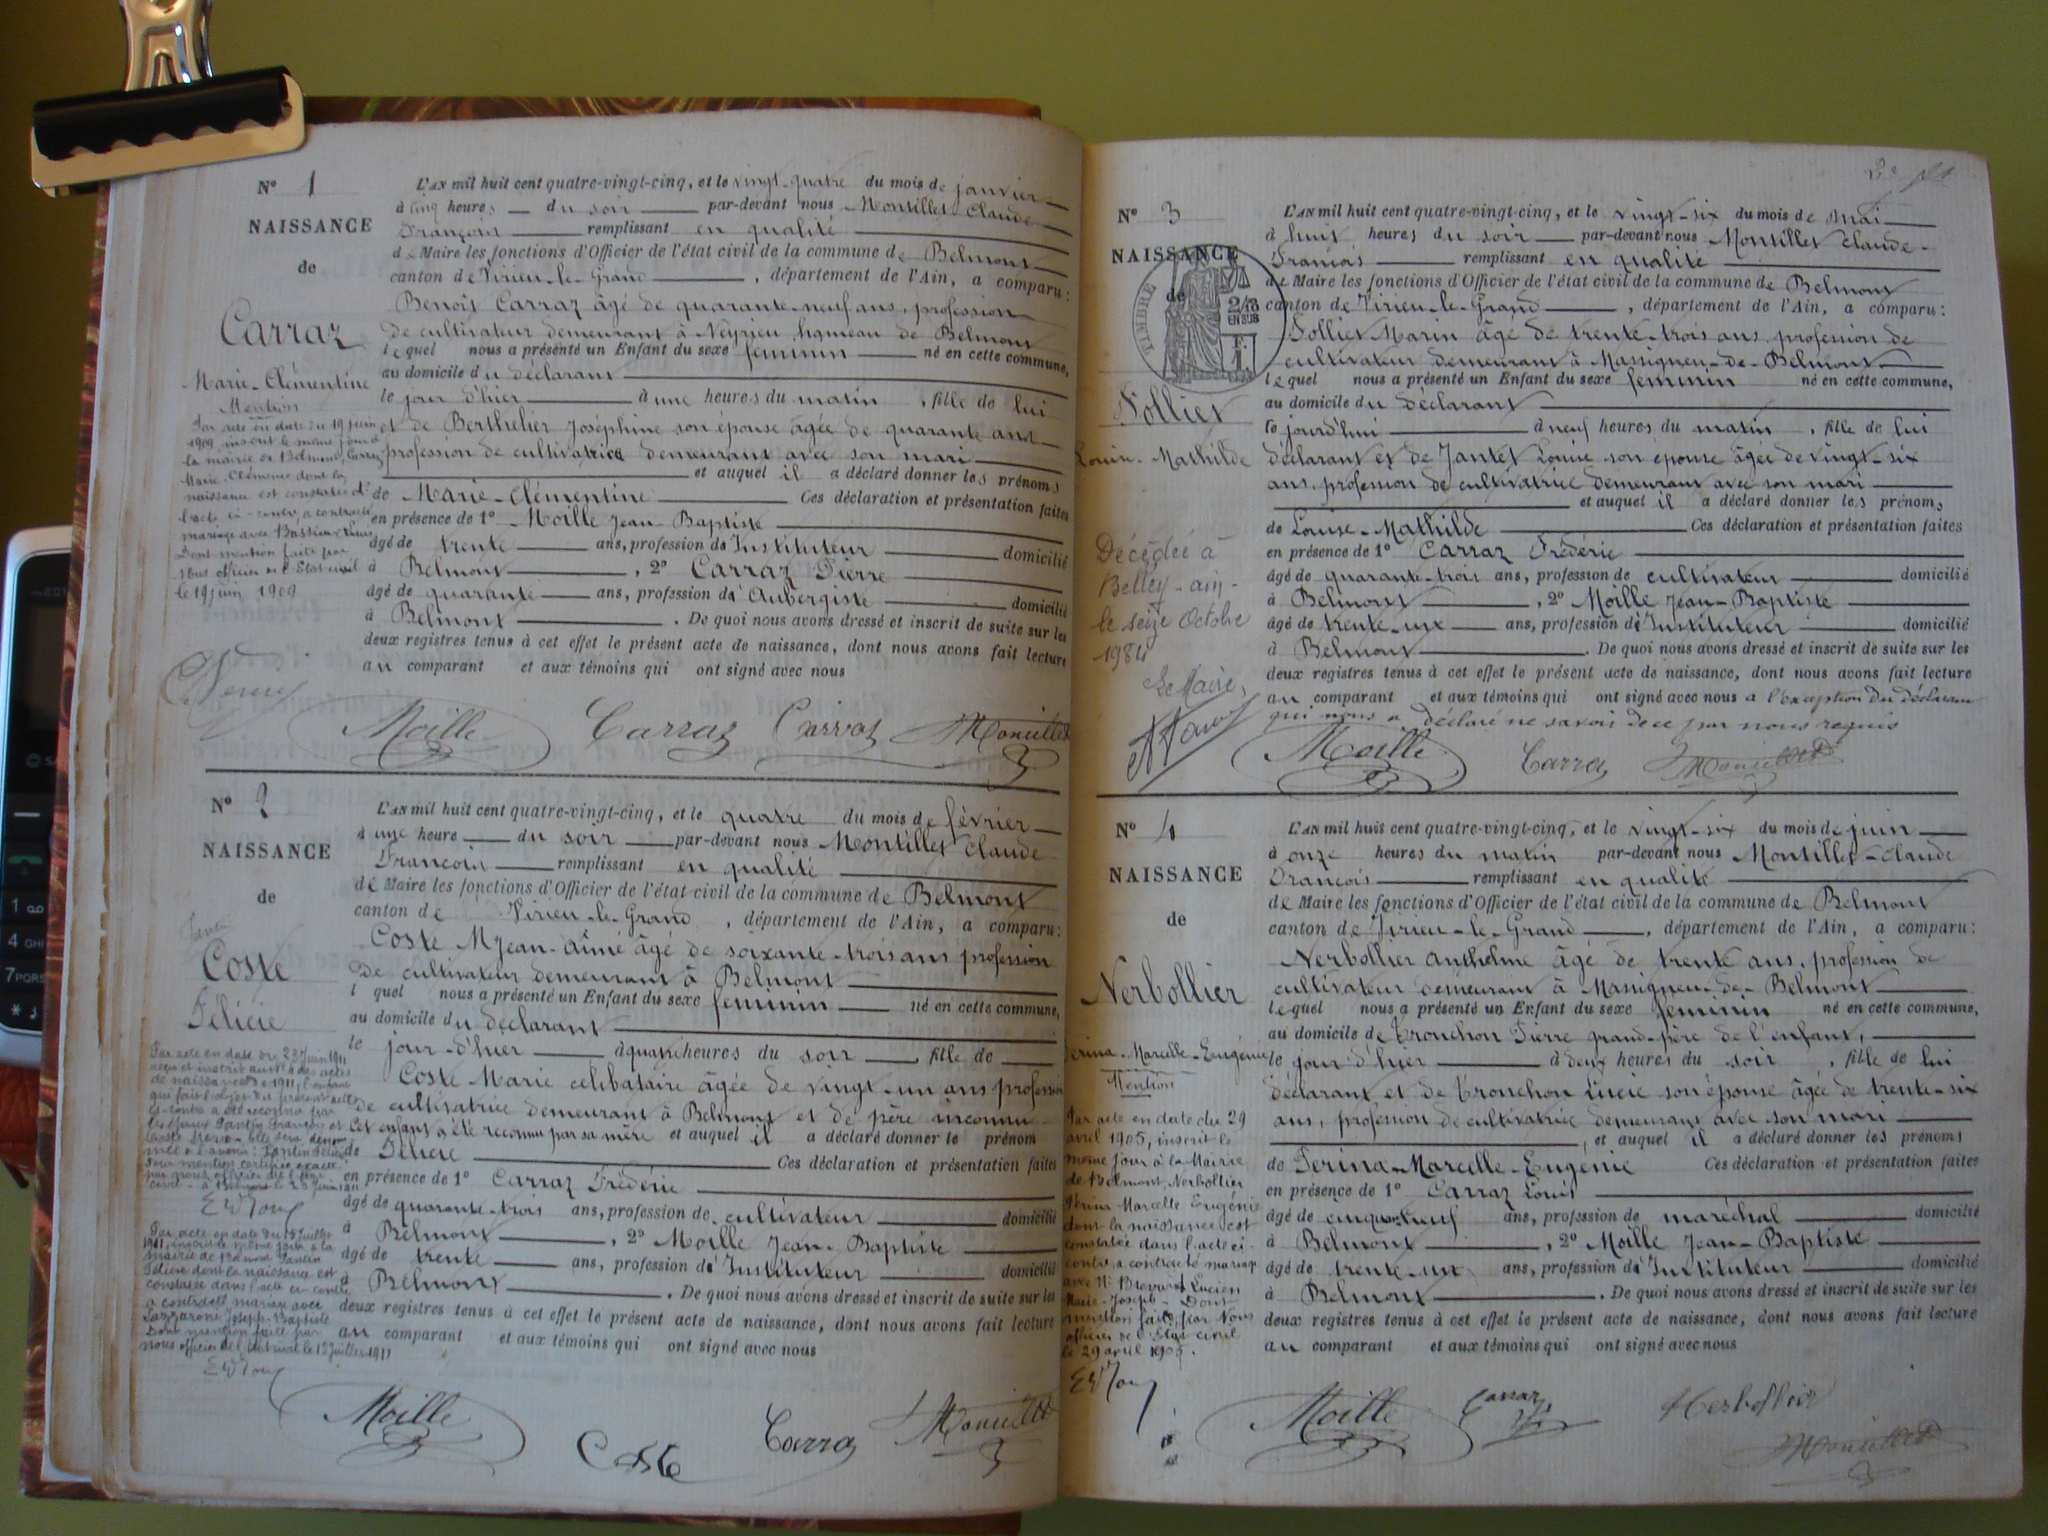 N° 1
NAISSANCE
de
Carraz
Marie-Clémentine
Mention
Par acte en date du 19 juin
1909, inscrit le même jour à
la mairie de Belmont, Carraz
Marie Clémence dont la
naissance est constatée
l'acte ci-contre, a contracté
mariage avec Bastien
Dont mention faite par
Nous officier de l'Etat civil
le 19 juin 1909
L'AN mil huit cent quatre-vingt-cinq, et le vingt-quatre du mois de janvier
à cinq heures du soir par-devant nous Montillet Claude
François remplissant en qualité
de Maire les fonctions d'Officier de l'état civil de la commune de Belmont
canton de Virieu-le-Grand, département de l'Ain, a comparu:
Benoît Carraz âgé de quarante-neuf ans, profession
de cultivateur demeurant à Neyrieu hameau de Belmont
lequel nous a présenté un Enfant du sexe féminin né en cette commune,
au domicile du déclarant
le jour d'hier à une heures du matin, fille de lui
et de Berthelier Joséphine son épouse âgée de quarante ans
profession de cultivatrice demeurant avec son mari
et auquel il a déclaré donner les prénoms
de Marie-Clémentine Ces déclaration et présentation faites
en présence de 1° Moille Jean-Baptiste
âgé de trente ans, profession d'Instituteur domicilié
à Belmont, 2° Carraz Pierre
âgé de quarante ans, profession d'Aubergiste domicilié
à Belmont. De quoi nous avons dressé et inscrit de suite sur les
deux registres tenus à cet effet le présent acte de naissance, dont nous avons fait lecture
au comparant et aux témoins qui ont signé avec nous
Moille Carraz Carraz Montillet
N° 2
NAISSANCE
de
Coste
Félicie
Par acte en date du 23 Juin 1911
de naissance de 1911, l'enfant
qui fait l'objet du présent acte
ci-contre a été reconnu par
les époux Fantin François et
Coste Marie
Par acte en date du 15 Juillet
1911, inscrit le même jour à la
mairie de Belmont, Fantin
Félicie dont la naissance est
constatée dans l'acte ci-contre
a contracté mariage avec
Joseph-Baptiste
Dont mention faite par
nous officier de l'état civil le 15 Juillet 1911
L'AN mil huit cent quatre-vingt-cinq, et le quatre du mois de février
à une heure du soir par-devant nous Montillet Claude
François remplissant en qualité
de Maire les fonctions d'Officier de l'état civil de la commune de Belmont
canton de Virieu-le-Grand, département de l'Ain, a comparu:
Coste Jean-Aimé âgé de soixante-trois ans profession
de cultivateur demeurant à Belmont
l quel nous a présenté un Enfant du sexe féminin né en cette commune,
au domicile du déclarant
le jour d'hier à quatre heures du soir, fille de
Coste Marie célibataire âgée de vingt-un ans profession
de cultivatrice demeurant à Belmont et de père inconnu
Cet enfant a été reconnu par sa mère et auquel il a déclaré donner le prénom
de Félicie Ces déclaration et présentation faites
en présence de 1° Carraz Frédéric
âgé de quarante-trois ans, profession de cultivateur domicilié
à Belmont, 2° Moille Jean-Baptiste
âgé de trente ans, profession d'Instituteur domicilié
à Belmont. De quoi nous avons dressé et inscrit de suite sur les
deux registres tenus à cet effet le présent acte de naissance, dont nous avons fait lecture
au comparant et aux témoins qui ont signé avec nous
Moille Coste Carraz Montillet
N° 3
NAISSANCE
de
TIMBRE
2/10
EN SUS
Follier
Louise-Mathilde
Décédée à
Belley-ain-
le seize Octobre
1984
Le Maire,
L'AN mil huit cent quatre-vingt-cinq, et le vingt-six du mois de mai
à huit heures du soir par-devant nous Montillet Claude
François remplissant en qualité
de Maire les fonctions d'Officier de l'état civil de la commune de Belmont
canton de Virieu-le-Grand, département de l'Ain, a comparu:
Follier Marin âgé de trente-trois ans profession de
cultivateur demeurant à Massigneu-de-Belmont
lequel nous a présenté un Enfant du sexe féminin né en cette commune,
au domicile du déclarant
le jourd'hui à neuf heures du matin, fille de lui
déclarant et de Jantet Louise son épouse âgée de vingt-six
ans, profession de cultivatrice demeurant avec son mari
et auquel il a déclaré donner les prénoms
de Louise-Mathilde Ces déclaration et présentation faites
en présence de 1° Carraz Frédéric
âgé de quarante-trois ans, profession de cultivateur domicilié
à Belmont, 2° Moille Jean-Baptiste
âgé de trente-un ans, profession d'Instituteur domicilié
à Belmont. De quoi nous avons dressé et inscrit de suite sur les
deux registres tenus à cet effet le présent acte de naissance, dont nous avons fait lecture
au comparant et aux témoins qui ont signé avec nous à l'exception du déclarant
qui nous a déclaré ne savoir de ce par nous requis
Moille Carraz Montillet
N° 4
NAISSANCE
de
Nerbollier
Férina-Marcelle-Eugénie
Mention
Par acte en date du 29
avril 1905, inscrit le
même jour à la Mairie
de Belmont, Nerbollier
Férina Marcelle Eugénie
dont la naissance est
constatée dans l'acte ci-
contre, a contracté mariage
avec Mr Lucien
Marie-Joseph - Dont
mention faite par Nous
officier de l'Etat civil
le 29 avril 1905.
L'AN mil huit cent quatre-vingt-cinq, et le vingt-six du mois de juin
à onze heures du matin par-devant nous Montillet-Claude
François remplissant en qualité
de Maire les fonctions d'Officier de l'état civil de la commune de Belmont
canton de Virieu-le-Grand, département de l'Ain, a comparu:
Nerbollier Anthelme âgé de trente ans, profession de
cultivateur demeurant à Massigneu-de-Belmont
lequel nous a présenté un Enfant du sexe féminin né en cette commune,
au domicile de Tronchon Pierre grand-père de l'enfant,
le jour d'hier à deux heures du soir, fille de lui
déclarant et de Tronchon Lucie son épouse âgée de trente-six
ans, profession de cultivatrice demeurant avec son mari
, et auquel il a déclaré donner les prénoms
de Férina-Marcelle-Eugénie Ces déclaration et présentation faites
en présence de 1° Carraz Louis
âgé de cinquante-neuf ans, profession de maréchal domicilié
à Belmont, 2° Moille Jean-Baptiste
âgé de trente-un ans, profession d'Instituteur domicilié
à Belmont. De quoi nous avons dressé et inscrit de suite sur les
deux registres tenus à cet effet le présent acte de naissance, dont nous avons fait lecture
au comparant et aux témoins qui ont signé avec nous
Moille Carraz Nerbollier
Montillet